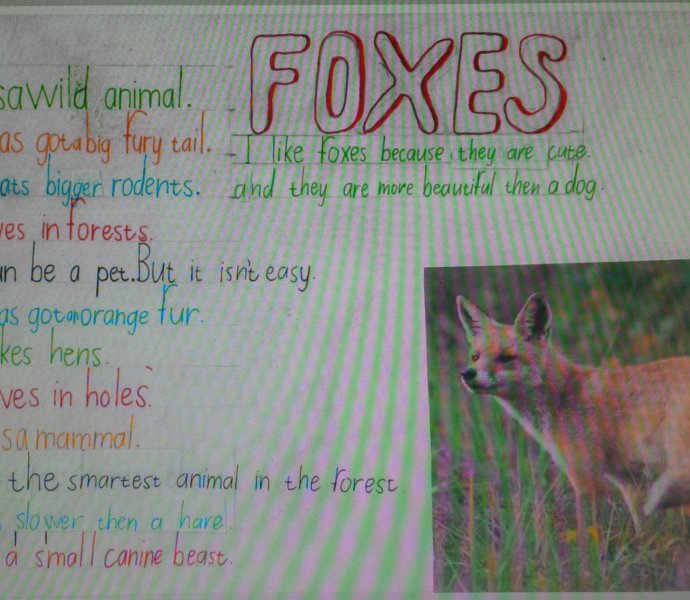 FOXES
sa wild animal.
as got a big fury tail.
ats bigger rodents.
ves in forests.
n be a pet. But it isn't easy.
as got an orange fur.
kes hens.
ves in holes.
s a mammal.
the smartest animal in the forest.
s slower then a hare.
a small canine beast.
- I like foxes because they are cute.
and they are more beautiful then a dog.